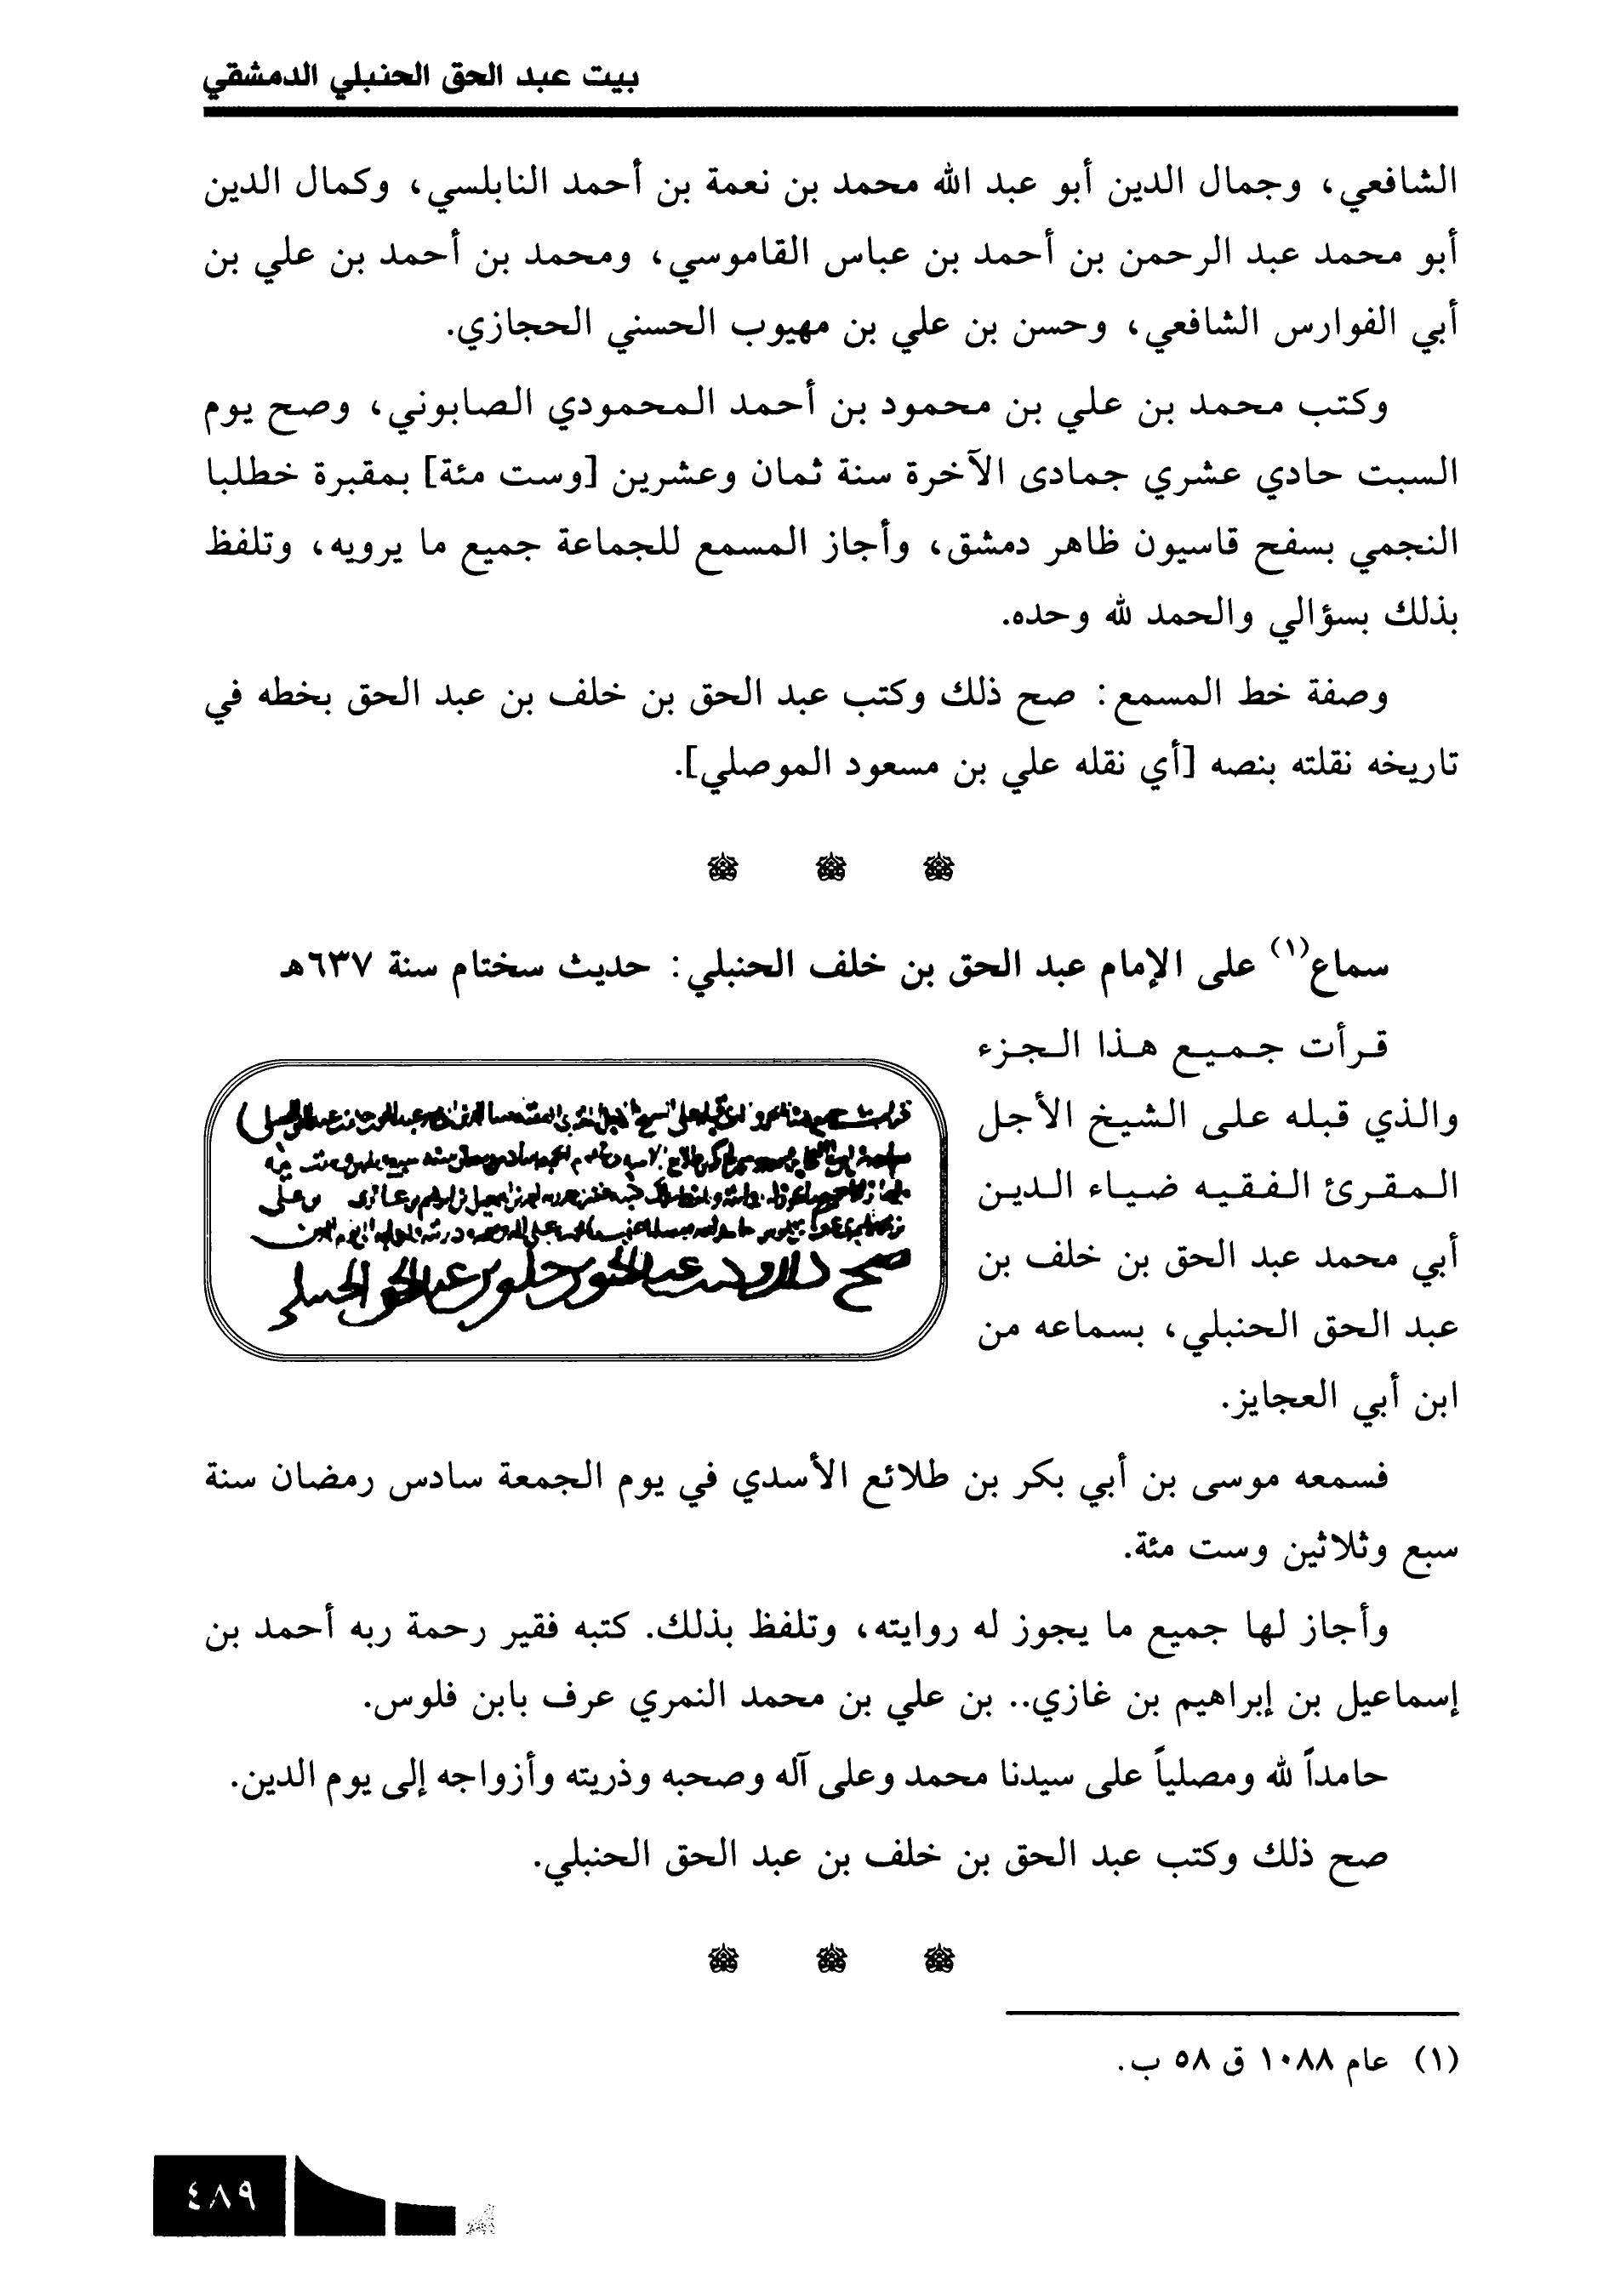 بيت عبد الحق الحنبلي الدمشقي
الشافعي، وجمال الدين أبو عبد الله محمد بن نعمة بن أحمد النابلسي، وكمال الدين
أبو محمد عبد الرحمن بن أحمد بن عباس القاموسي، ومحمد بن أحمد بن علي بن
أبي الفوارس الشافعي، وحسن بن علي بن مهيوب الحسني الحجازي.
وكتب محمد بن علي بن محمود بن أحمد المحمودي الصابوني، وصح يوم
السبت حادي عشري جمادى الآخرة سنة ثمان وعشرين [وست مئة] بمقبرة خطلبا
النجمي بسفح قاسيون ظاهر دمشق، وأجاز المسمع للجماعة جميع ما يرويه، وتلفظ
بذلك بسؤالي والحمد لله وحده.
وصفة خط المسمع: صح ذلك وكتب عبد الحق بن خلف بن عبد الحق بخطه في
تاريخه نقلته بنصه [أي نقله علي بن مسعود الموصلي].
سماع(١) على الإمام عبد الحق بن خلف الحنبلي: حديث سختام سنة ٦٣٧هـ
قرأت جميع هذا الجزء
والذي قبله على الشيخ الأجل
المقرئ الفقيه ضياء الدين
أبي محمد عبد الحق بن خلف بن
عبد الحق الحنبلي، بسماعه من
ابن أبي العجايز.
صح ذلك وكتب عبد الحق بن خلف بن عبد الحق الحنبلي
فسمعه موسى بن أبي بكر بن طلائع الأسدي في يوم الجمعة سادس رمضان سنة
سبع وثلاثين وست مئة.
وأجاز لها جميع ما يجوز له روايته، وتلفظ بذلك. كتبه فقير رحمة ربه أحمد بن
إسماعيل بن إبراهيم بن غازي.. بن علي بن محمد النمري عرف بابن فلوس.
حامداً لله ومصلياً على سيدنا محمد وعلى آله وصحبه وذريته وأزواجه إلى يوم الدين.
صح ذلك وكتب عبد الحق بن خلف بن عبد الحق الحنبلي.
(١) عام ١٠٨٨ ق ٥٨ ب.
٤٨٩